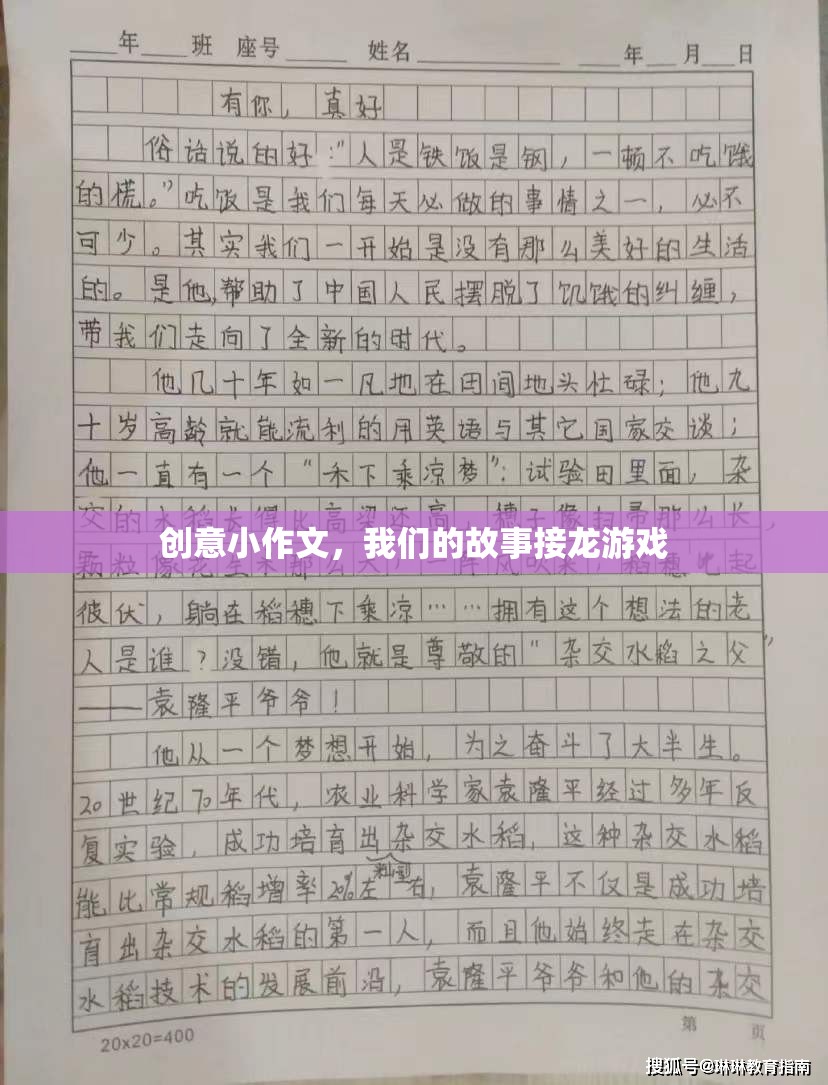 年 班 座号 姓名 年 月 日
有你，真好
俗话说的好：“人是铁饭是钢，一顿不吃饿
的慌。”吃饭是我们每天必做的事情之一，必不
可少。其实我们一开始是没有那么美好的生活
的。是他，帮助了中国人民摆脱了饥饿的纠缠，
带我们走向了全新的时代。
他几十年如一凡地在田间地头忙碌；他九
十岁高龄就能流利的用英语与其它国家交谈；
他一直有一个“禾下乘凉梦”：试验田里面，杂
交的水稻长得比高粱还高，穗子像扫帚那么长，
创意小作文，我们的故事接龙游戏
颗粒像花生米那么大，一阵风吹来，稻穗此起
彼伏，躺在稻穗下乘凉……拥有这个想法的老
人是谁？没错，他就是尊敬的“杂交水稻之父”
——袁隆平爷爷！
他从一个梦想开始，为之奋斗了大半生。
20世纪70年代，农业科学家袁隆平经过多年反
复实验，成功培育出杂交水稻，这种杂交水稻
籼型
能比常规稻增率20%左右，袁隆平不仅是成功培
育出杂交水稻的第一人，而且他始终走在杂交
水稻技术的发展前沿，袁隆平爷爷和他的杂交
20×20=400
第 页
搜狐号@琳琳教育指南